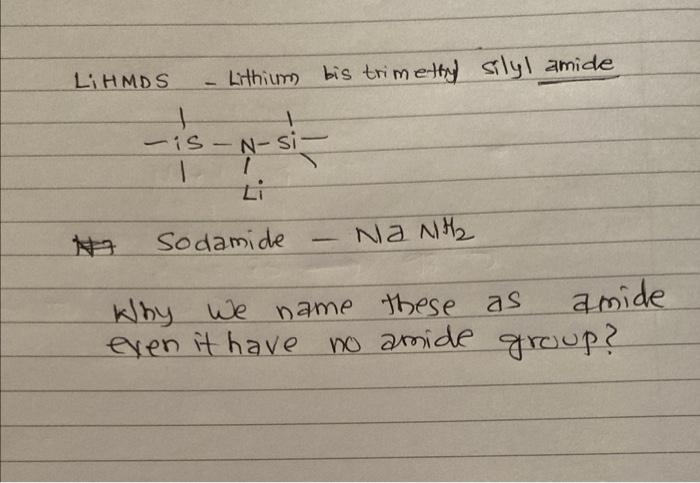 LiHMDS - Lithium bis trimethyl silyl amide
-iS-N-Si-
Li
Sodamide - NaNH2
Why we name these as amide
even it have no amide group?